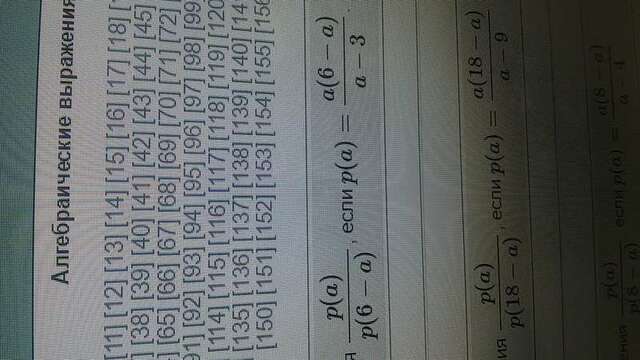 Алгебраические выражения
[11] [12] [13] [14] [15] [16] [17] [18]
[38] [39] [40] [41] [42] [43] [44] [45]
[65] [66] [67] [68] [69] [70] [71] [72]
91] [92] [93] [94] [95] [96] [97] [98] [99]
[114] [115] [116] [117] [118] [119] [120
[135] [136] [137] [138] [139] [140] [141
[150] [151] [152] [153] [154] [155] [156
я p(a)/p(6 − a), если p(a) = a(6 − a)/(a − 3).
ия p(a)/p(18 − a), если p(a) = a(18 − a)/(a − 9)
ния p(a)/p(8 − a), если p(a) = a(8 − a)/(a − 4)